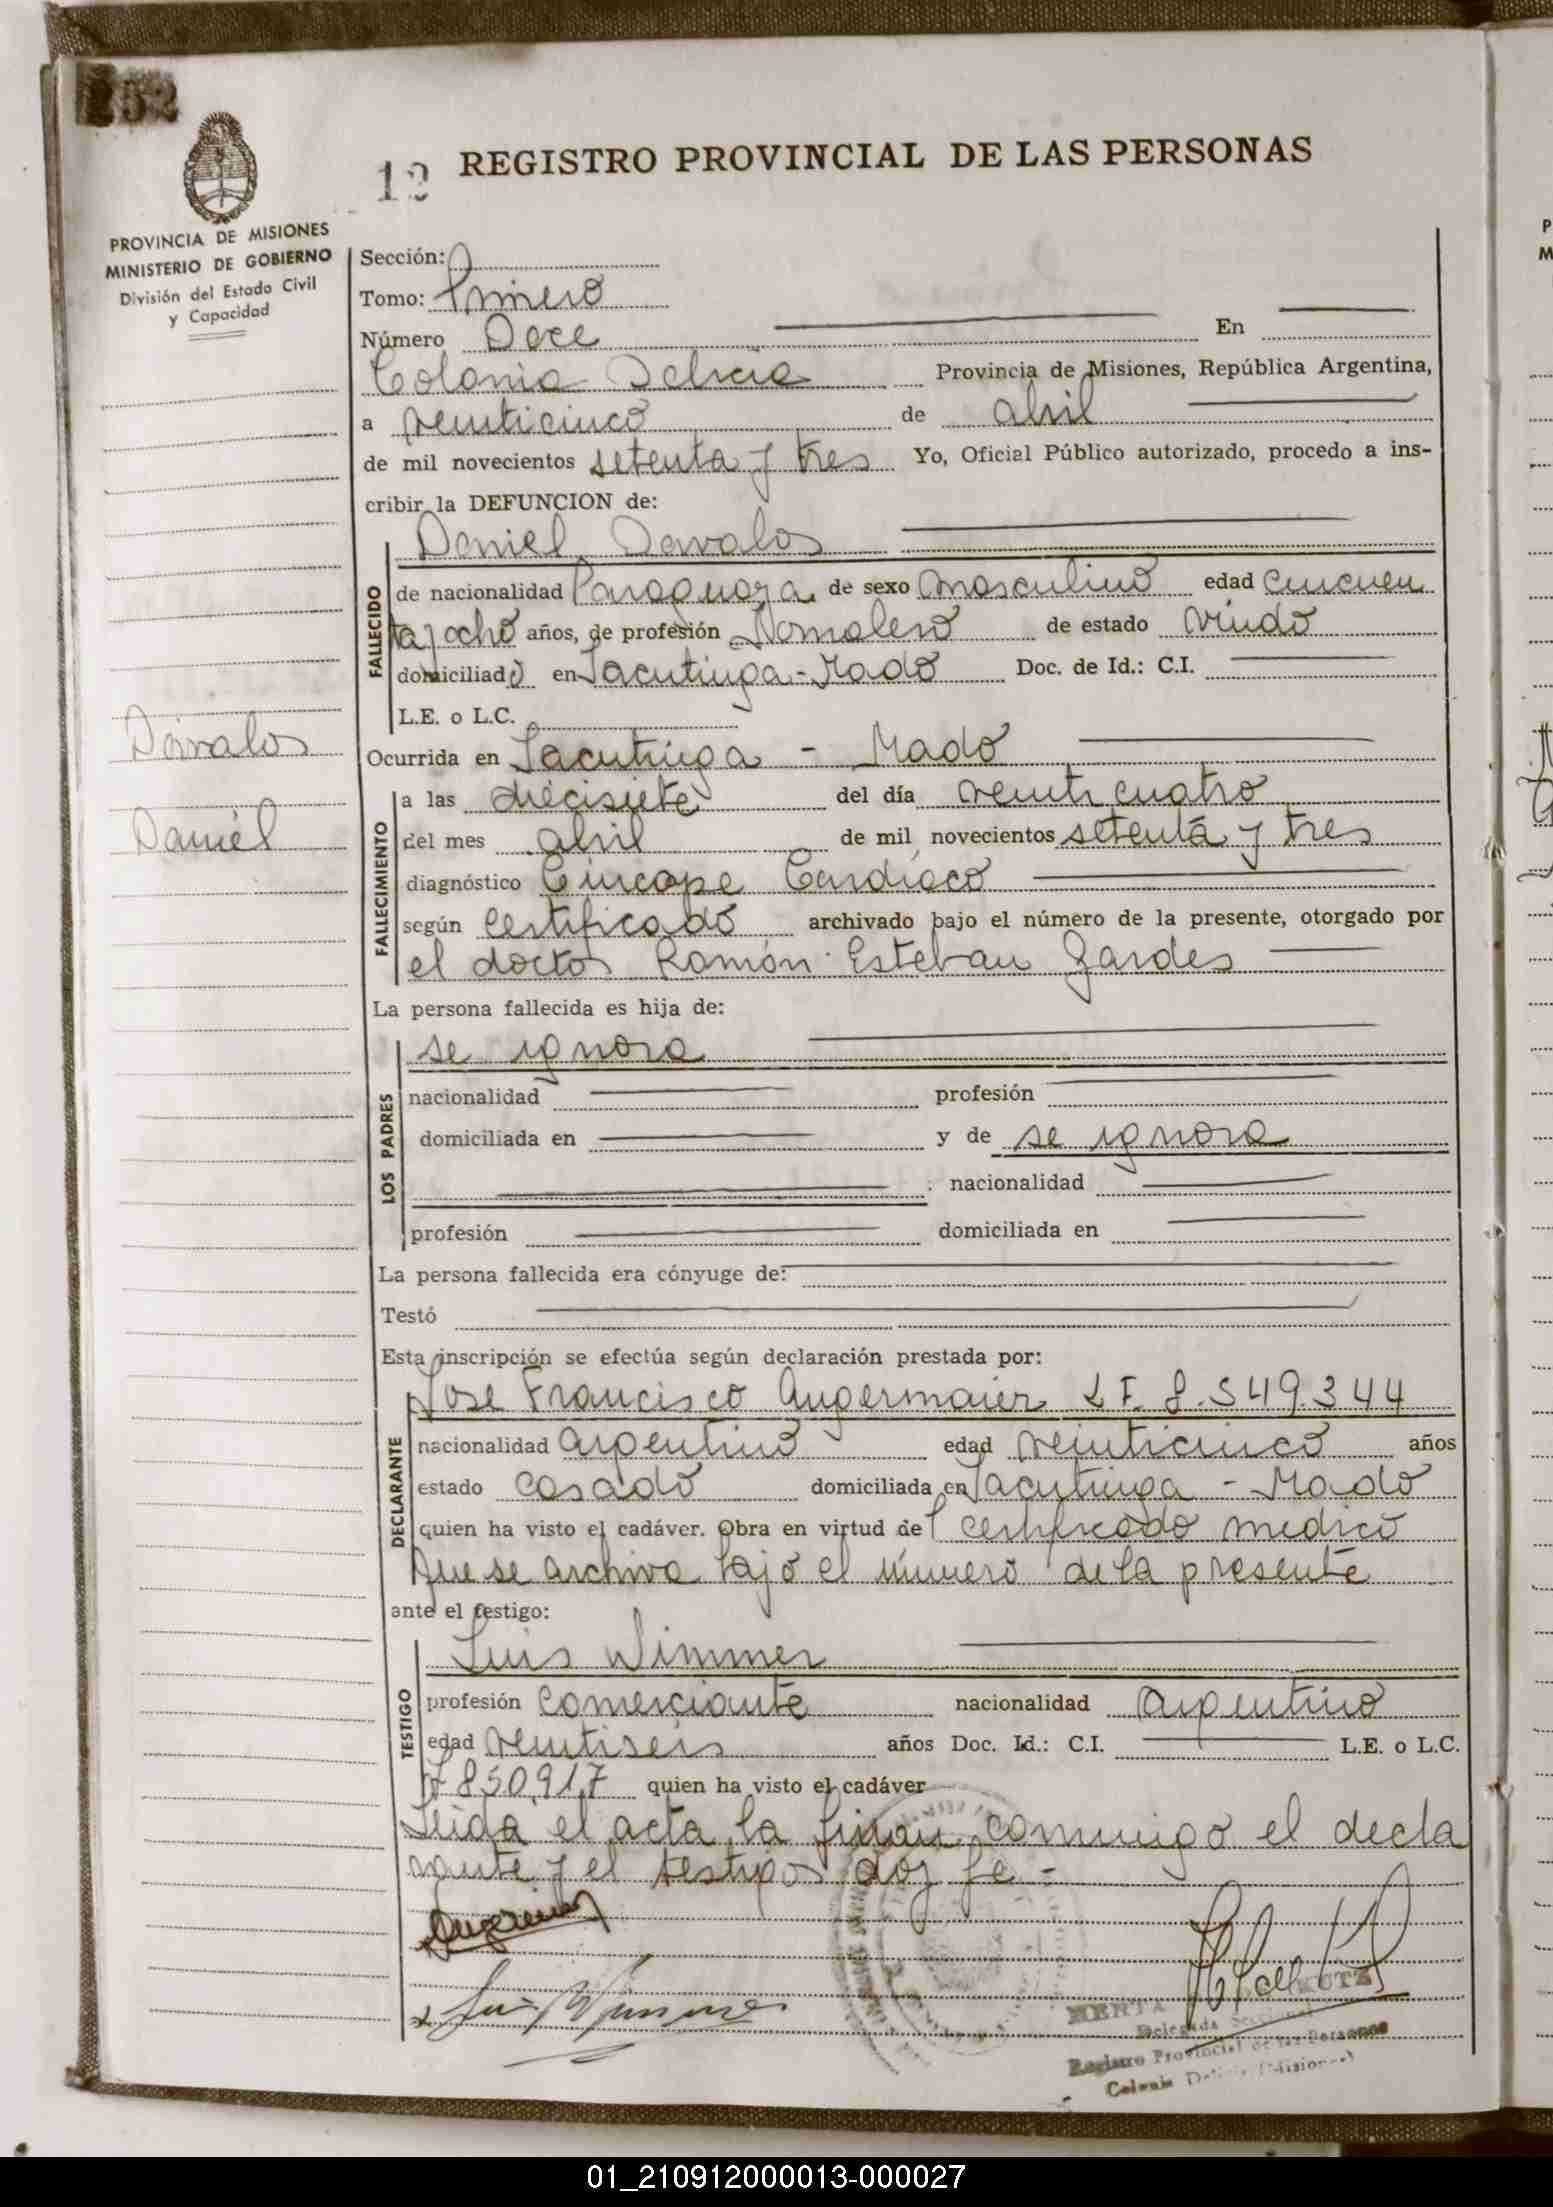 252
12 REGISTRO PROVINCIAL DE LAS PERSONAS
PROVINCIA DE MISIONES
MINISTERIO DE GOBIERNO
División del Estado Civil
y Capacidad
Sección:
Tomo: Primero
Número Doce En
Colonia Delicia Provincia de Misiones, República Argentina,
a veinticinco de abril
de mil novecientos setenta y tres Yo, Oficial Público autorizado, procedo a ins-
cribir la DEFUNCION de:
Daniel Davalos
FALLECIDO
de nacionalidad Paraguaya de sexo masculino edad cincuen
ta y ocho años, de profesión Jornalero de estado viudo
domiciliado en Tacutinga-Mado Doc. de Id.: C.I.
L.E. o L.C.
Dávalos
Daniel
Ocurrida en Tacutinga - Mado
FALLECIMIENTO
a las diecisiete del día veinticuatro
del mes abril de mil novecientos setenta y tres
diagnóstico Cincope Cardíaco
según certificado archivado bajo el número de la presente, otorgado por
el doctor Ramón Esteban Gardes
La persona fallecida es hija de:
LOS PADRES
se ignora
nacionalidad profesión
domiciliada en y de se ignora
nacionalidad
profesión domiciliada en
La persona fallecida era cónyuge de:
Testó
Esta inscripción se efectúa según declaración prestada por:
DECLARANTE
Jose Francisco Angermaier L E. 8.549.344
nacionalidad argentino edad veinticinco años
estado casado domiciliada en Tacutinga - Mado
quien ha visto el cadáver. Obra en virtud del certificado medico
que se archiva bajo el número de la presente
ante el testigo:
TESTIGO
Luis Wimmer
profesión comerciante nacionalidad argentino
edad veintiseis años Doc. Id.: C.I. L.E. o L.C.
7.850.917 quien ha visto el cadáver
Leida el acta la firman conmigo el decla
rante y el testigos doy fe -
Registro Provincial de las Personas
Colonia Delicia (Misiones)
01_210912000013-000027